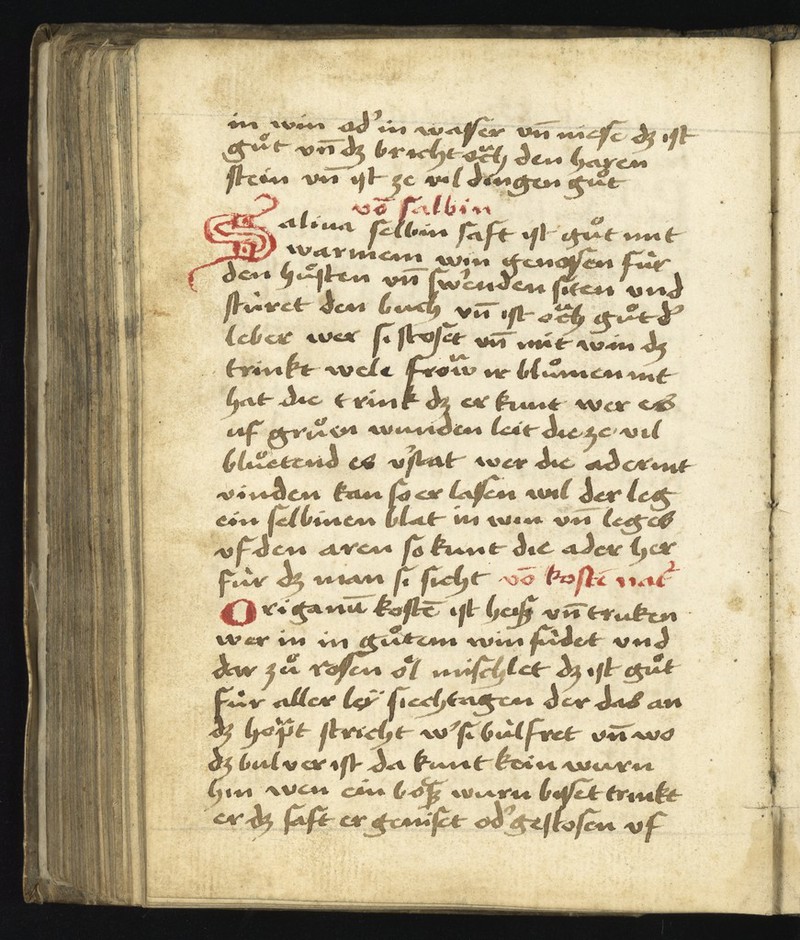 in win od' in wasser vn̄ niese dz ist
gůt vn̄ dz bricht oͮch den haren
stein vn̄ ist ze vil dingen gůt
vō salbin
Saluia selbin saft ist gůt mit
warmem win genossen für
den hůsten vn̄ swenden siten vnd
stüret den buch vn̄ ist oͮch gůt d'
leber wer si stoset vn̄ mit win dz
trinkt wele froͮw ir blůmen nit
hat die trink dz er kunt wer es
uf grůen wunden leit die ze vil
blůetend es v'stat wer die ader nit
vinden kan so er lassen wil der leg
ein selbinen blat in win vn̄ leg es
vf den aren so kunt die ader her
für dz man si sicht vō kostē
Origanū kostē ist heiß vn̄ truken
wer in in gůtem win südet vnd
dar zů rosen öl mischlet dz ist gůt
für aller leÿ siechtagen der das an
dz hoͮpt stricht w' si bülfret vn̄ wo
dz bulver ist da kunt kein wurn
hin wen ein böß wurn bisset trinkt
er dz saft er geniset od' gestosen vf